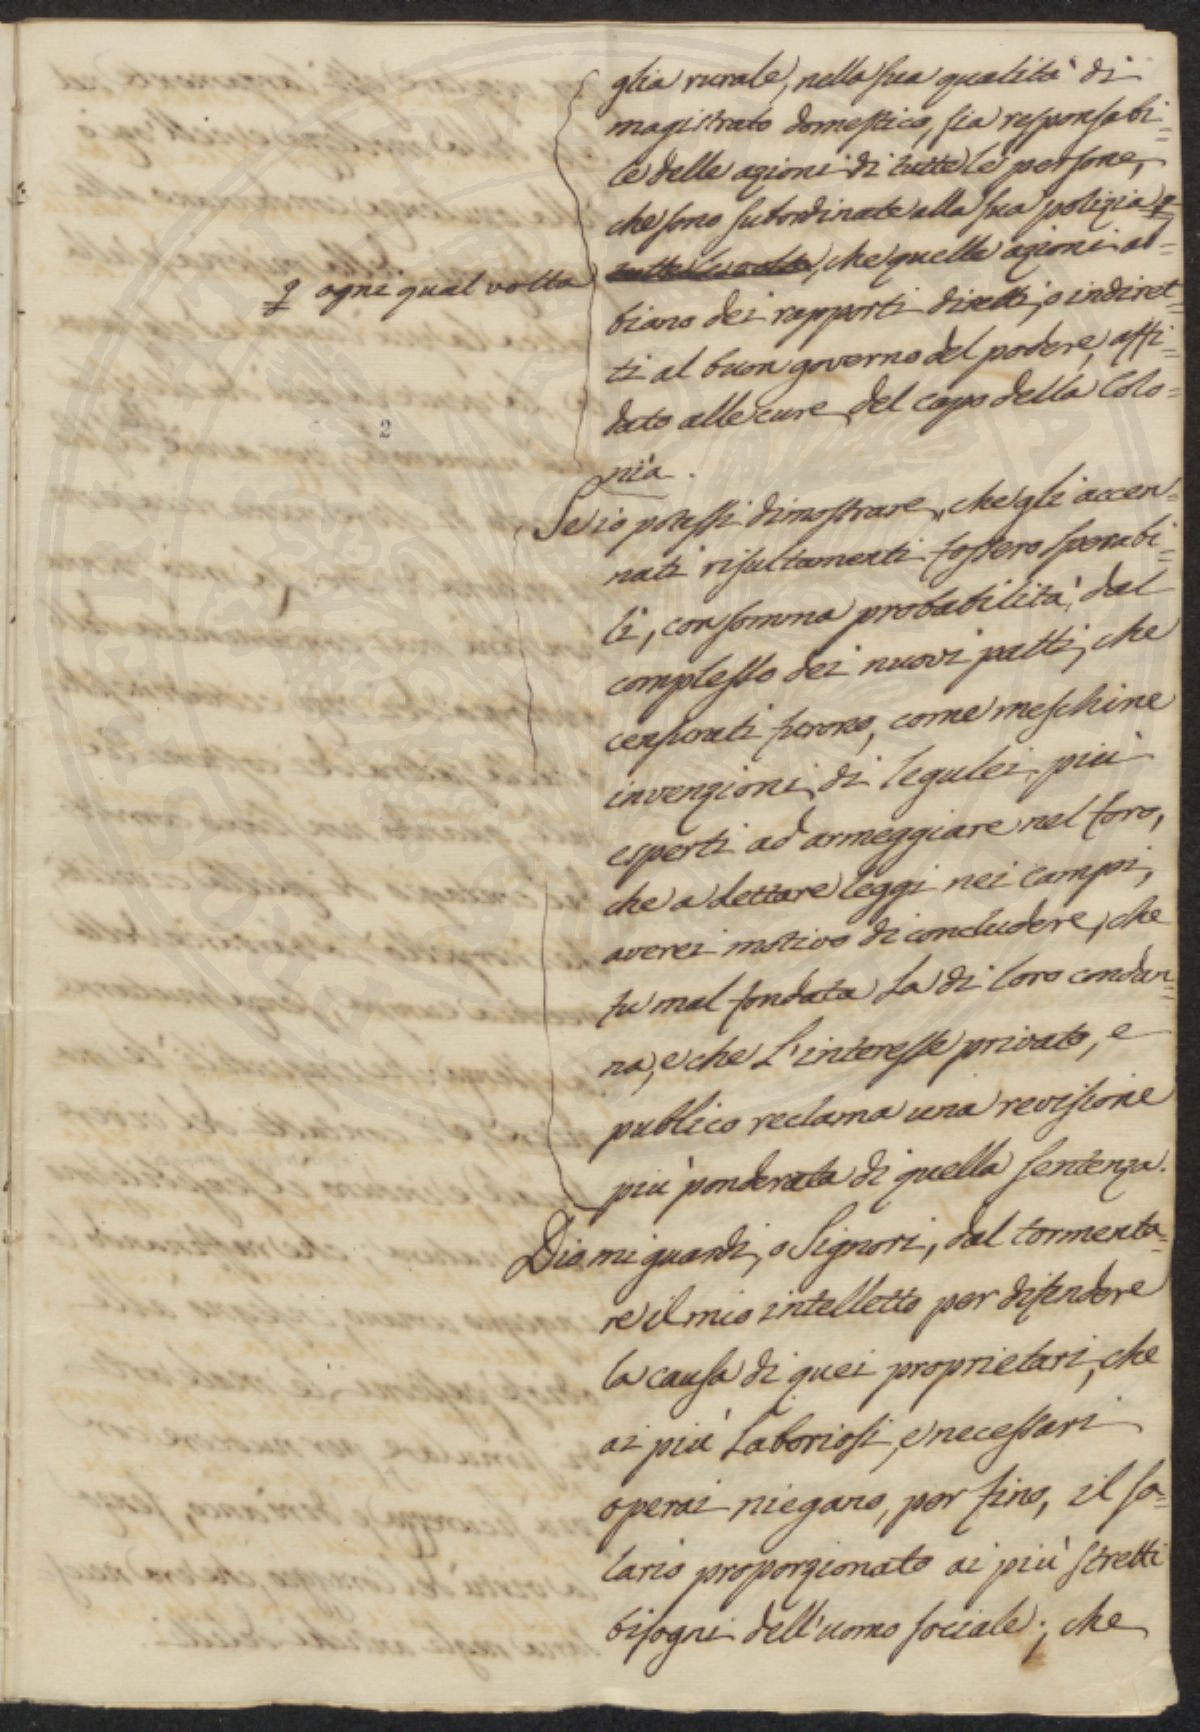 glia rurale, nella sua qualità di
magistrato domestico, sia responsabi=
le delle azioni di tutte le persone,
che sono subordinate alla sua polizia
tutte le volte, che quelle azioni ab=
ogni qual volta
biano dei rapporti diretti, o indiret=
ti al buon governo del podere, affi=
dato alle cure del capo della Colo=
nia.
2
Se io potessi dimostrare, che gli accen=
nati risultamenti fossero sperabi=
li, con somma probabilità, dal
complesso dei nuovi patti, che
censurati furono, come meschine
invenzioni di legulei, più
esperti ad armeggiare nel foro,
che a dettare leggi nei campi,
averei motivo di concludere, che
fu mal fondata la di loro condan=
na, e che l'interesse privato, e
publico reclama una revisione
più ponderata di quella sentenza.
Dio mi guardi, o Signori, dal tormenta=
re il mio intelletto per difendere
la causa di quei proprietari, che
ai più laboriosi, e necessari
operai niegano, per fino, il sa=
lario proporzionato ai più stretti
bisogni dell'uomo sociale; che